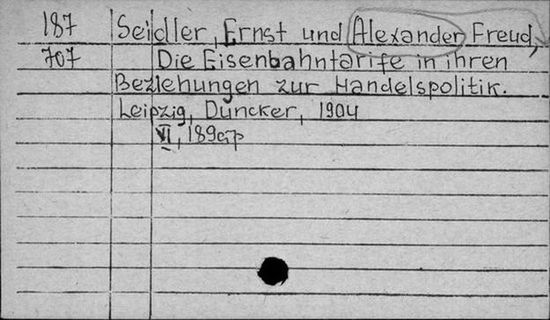 187 Seidler, Ernst und Alexander Freud,
707 Die Eisenbahntarife in ihren
Beziehungen zur Handelspolitik.
Leipzig, Duncker, 1904
VI, 189